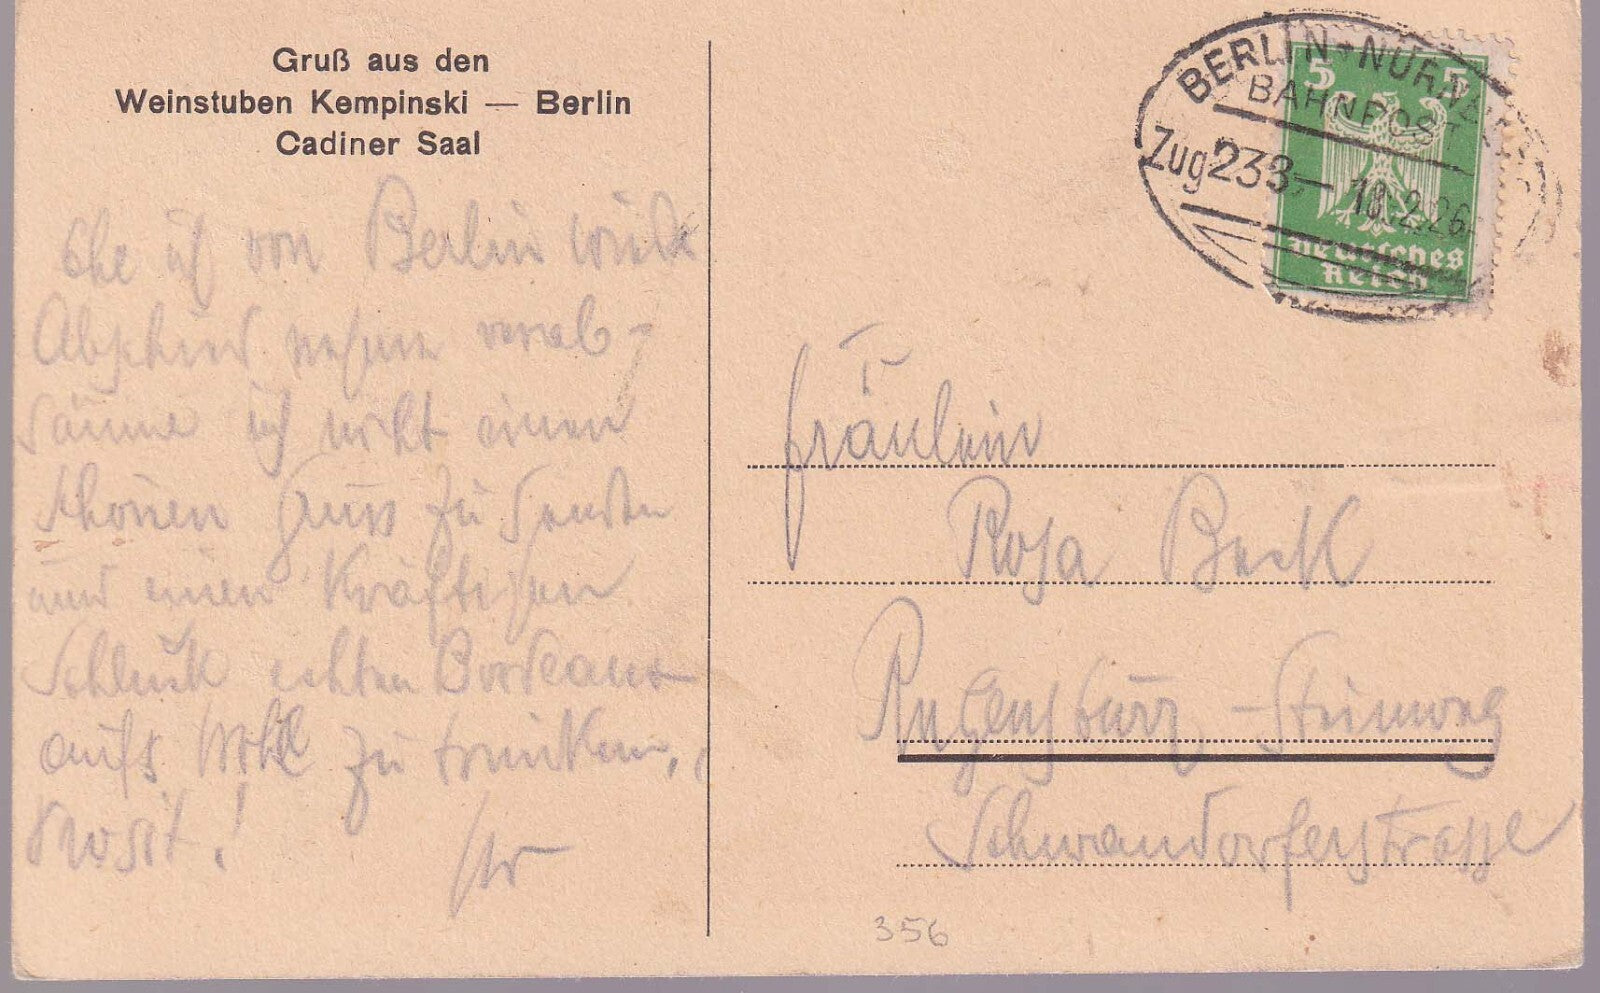 Gruß aus den
Weinstuben Kempinski — Berlin
Cadiner Saal
Ehe ich von Berlin wieder
Abschied nehme verab-
säume ich nicht einen
schönen Gruss zu senden
und einen Kräftigen
Schluck echten Bordeaux
aufs Wohl zu trinken,
Prosit!
BERLIN - NÜRNBERG
BAHNPOST
Zug 233 18.2.26
5 5
Deutsches
Reich
Fräulein
Rosa Beck
Regensburg - Steinweg
Schwandorferstrasse
356